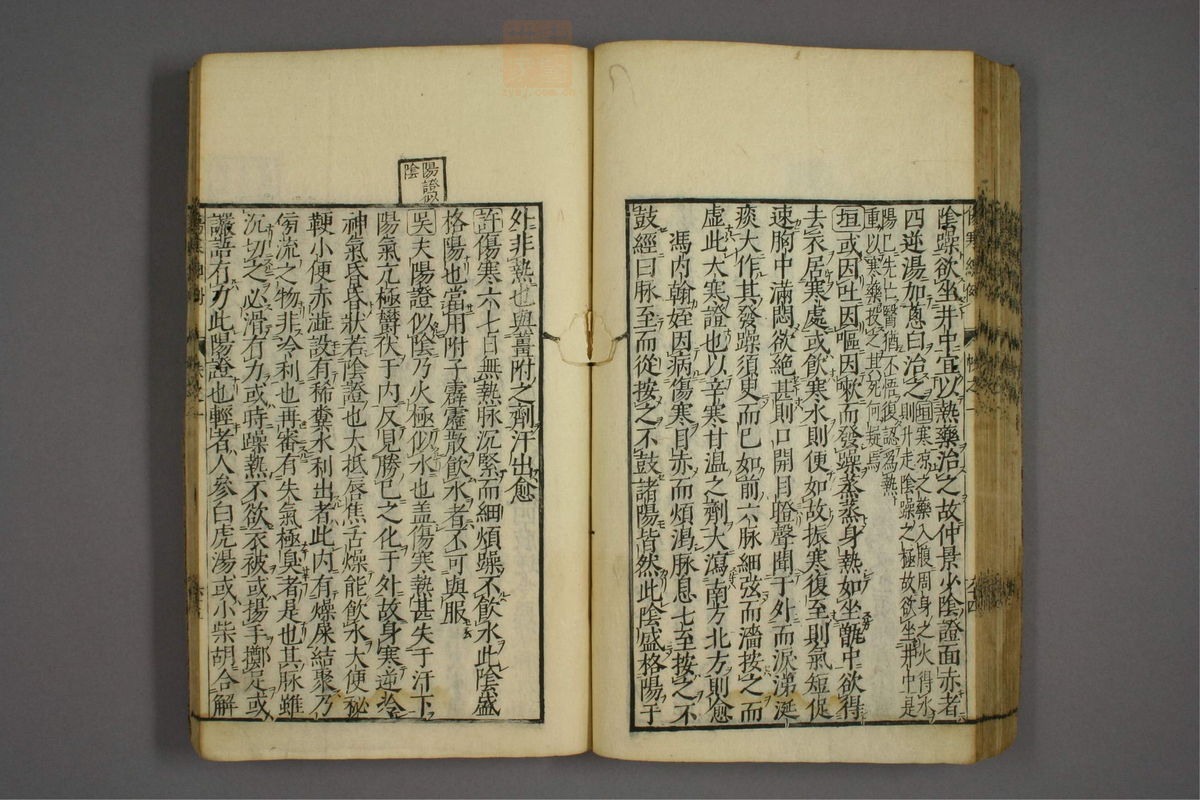 陰躁欲坐井中宜以熱藥治之故仲景少陰證面赤者
四逆湯加蔥白治之垣寒凉之藥入腹周身之火得水則升走陰躁之極故欲坐井中是
陽已先亡醫猶不悟復認為熱重以寒藥投之其死何疑焉
垣或因吐因嘔因嗽而發躁蒸蒸身熱如坐甑中欲得
去衣居寒處或飲寒水則便如故振寒復至則氣短促
速胸中滿悶欲絕甚則口開目瞪聲聞于外而淚涕涎
痰大作其發躁須臾而已如前六脉細弦而濇按之而
虛此大寒證也以辛寒甘温之劑大瀉南方北方則愈
馮内翰姪因病傷寒目赤而煩渴脉息七至按之不
鼓經曰脉至而從按之不鼓諸陽皆然此陰盛格陽于
外非熱也與薑附之劑汗出愈
許傷寒六七日無熱脉沉緊而細煩躁不飲水此陰盛
格陽也當用附子霹靂散飲水者不可與服
陽證似陰
吳夫陽證似陰乃火極似水也盖傷寒熱甚失于汗下
陽氣亢極鬱伏于内反見勝己之化于外故身寒逆冷
神氣昏昏狀若陰證也大抵唇焦舌燥能飲水大便秘
鞕小便赤澁設有稀糞水利出者此内有燥屎結聚乃
傍流之物非冷利也再審有失氣極臭者是也其脉雖
沉切之必滑有力或時躁熱不欲衣被或揚手擲足或
讝語有力此陽證也輕者人參白虎湯或小柴胡合解